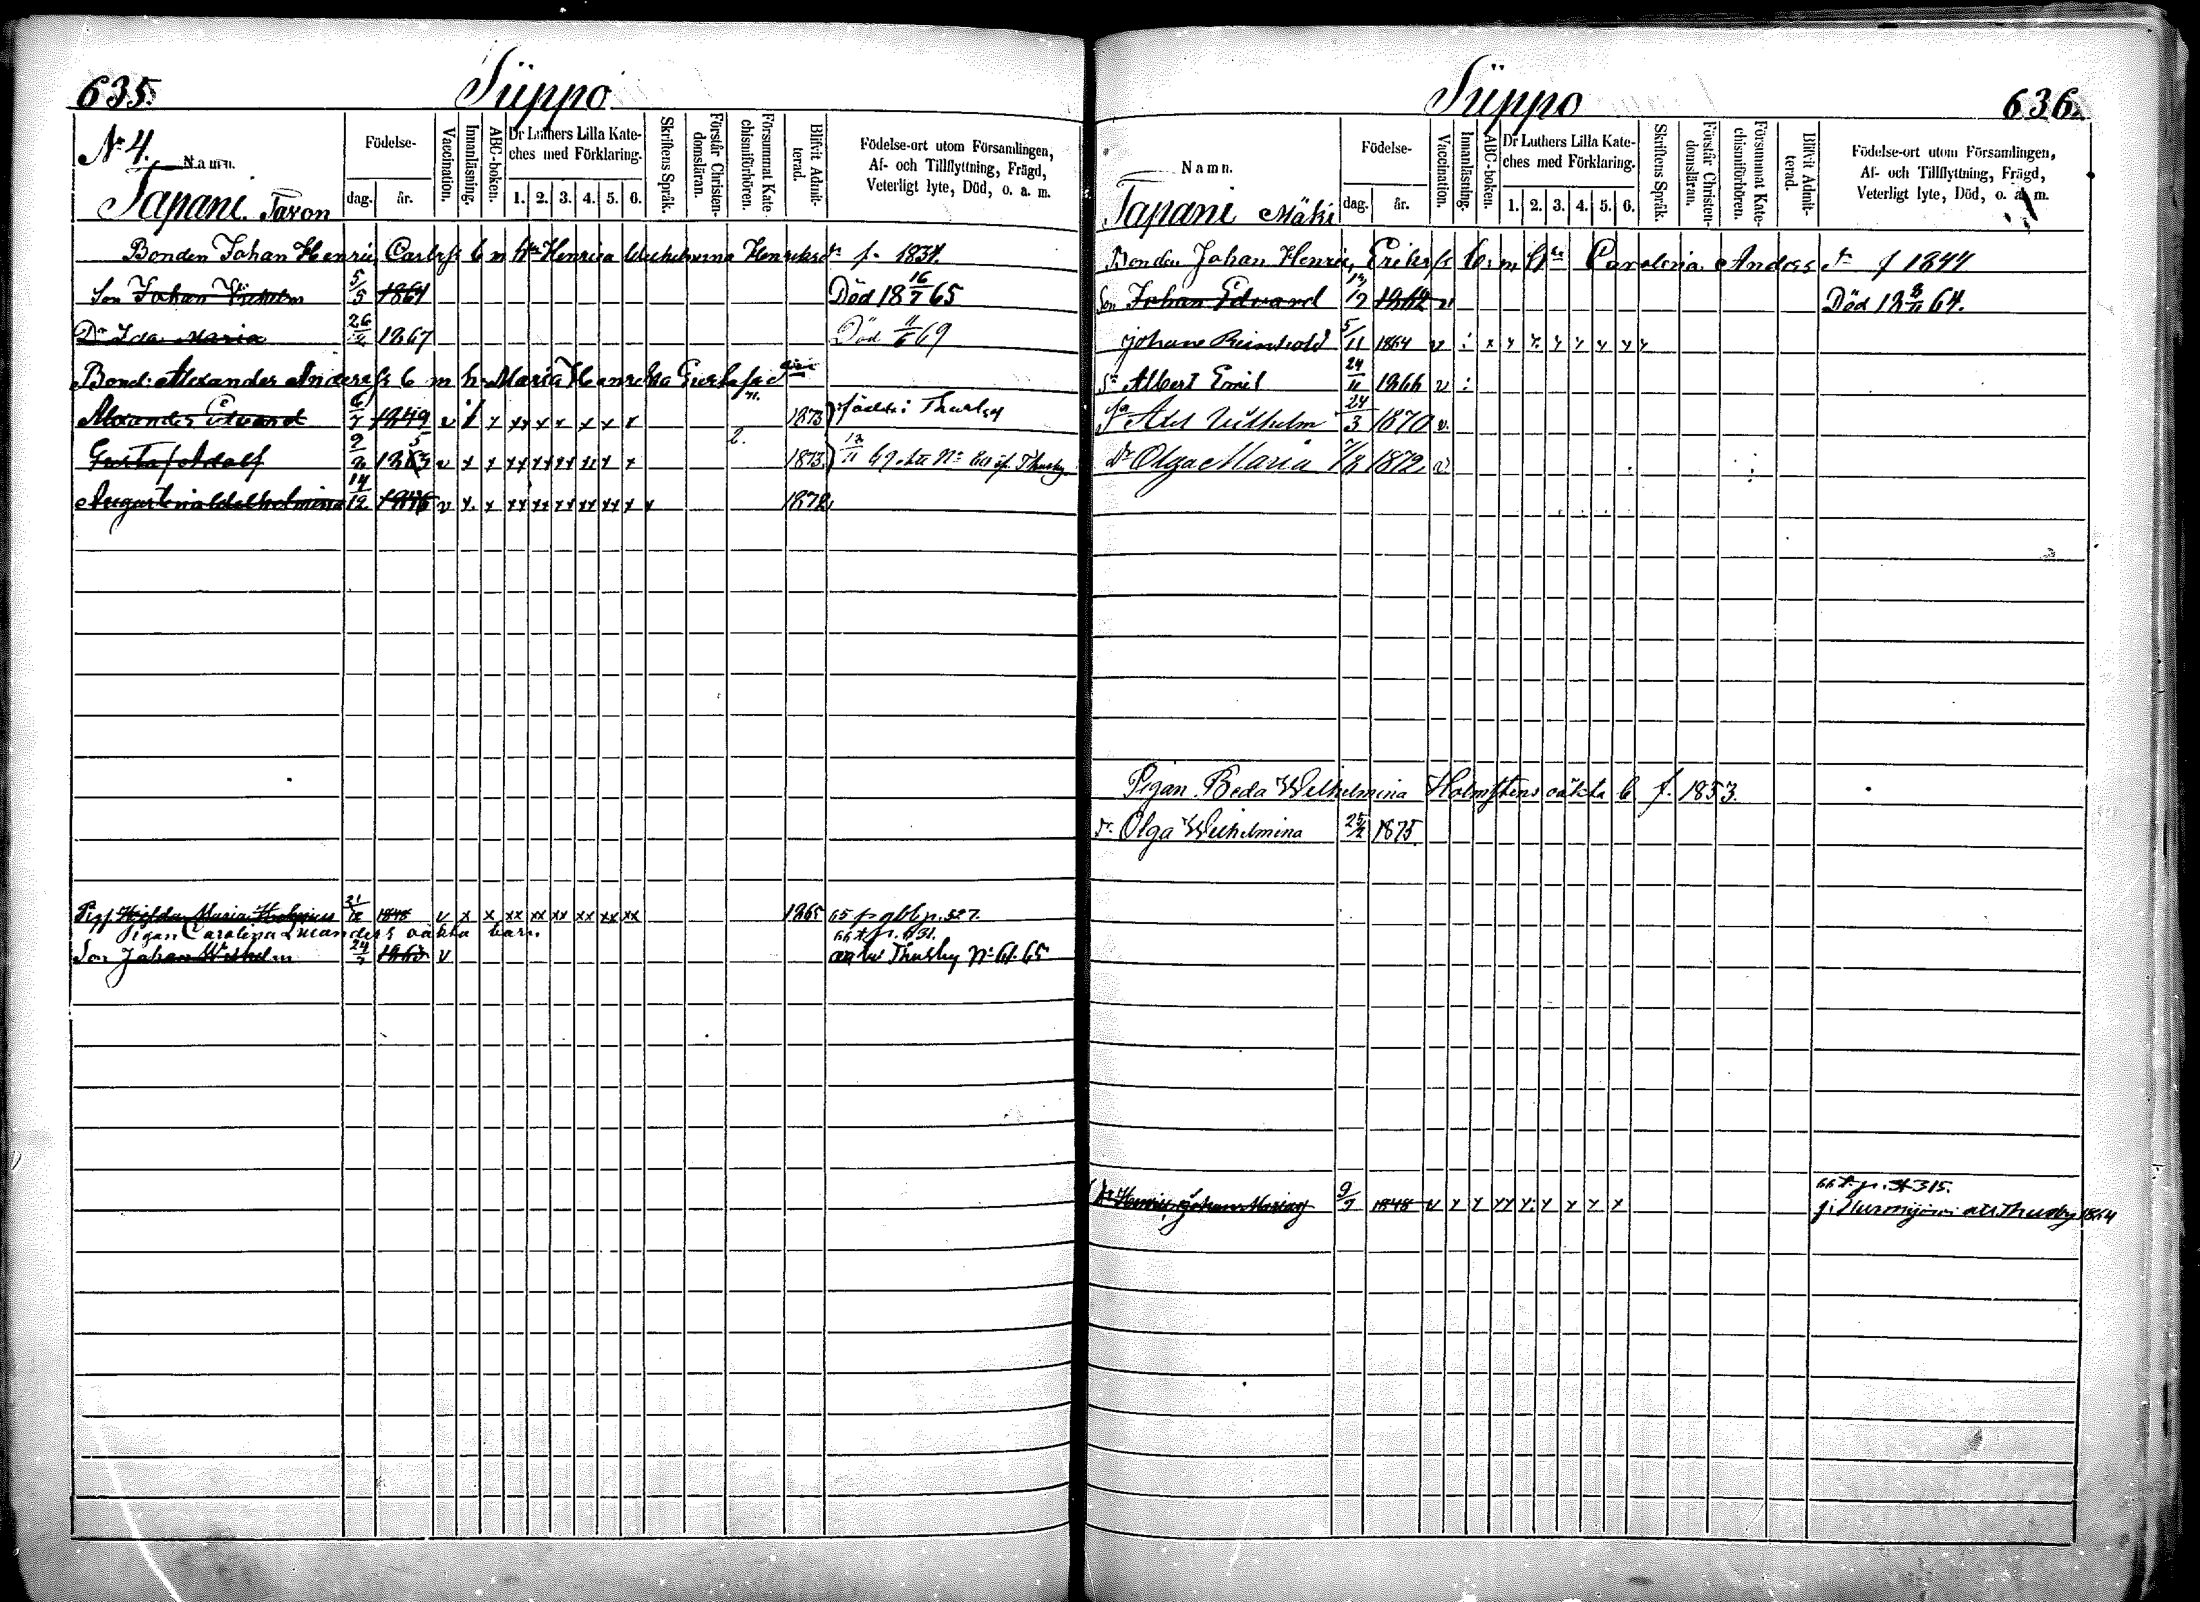 635.
Süppo
Nr 4.
Namn.
Födelse-
dag.
år.
Vaccination.
Innanläsning.
ABC-boken.
Dr Luthers Lilla Kate-
ches med Förklaring.
1. 2. 3. 4. 5. 6.
Skriftens Språk.
Förstår Christen-
domsläran.
Försummat Kate-
chismiförhören.
Blifvit Admit-
terad.
Födelse-ort utom Församlingen,
Af- och Tillflyttning, Frägd,
Veterligt lyte, Död, o. a. m.
Tapani Taxon
Bonden Johan Henric Carlsfs b m Henrica Wilhelmina Henriksdr f. 1834.
Son Johan Vilhelm 5/5 1864 Död 18 16/7 65
Dr Ida Maria 26/2 1867 Död 69
Bond: Alexander Andersfs b m h Maria Henrika Gustafsd
Alexander Edvard 6/7 1849 v x xx x x x x x 1873 född i Thusby
Gustaf Adolf v x x xx xx xx xx x x 2. 1873.
Augustina Wilhelmina 14/12 v x. x xx xx xx xx xx x x 1872
Pig. Hilda Maria 31/12 1848 v x x xx xx xx xx xx xx 1865 65 p. 527.
Pigan Carolina oäkta barn 66 fr. p. 631.
Son Johan Wilhelm 24/7 1863 v Thusby No 61. 65
Süppo
636.
Namn.
Födelse-
dag.
år.
Vaccination.
Innanläsning.
ABC-boken.
Dr Luthers Lilla Kate-
ches med Förklaring.
1. 2. 3. 4. 5. 6.
Skriftens Språk.
Förstår Christen-
domsläran.
Försummat Kate-
chismiförhören.
Blifvit Admit-
terad.
Födelse-ort utom Församlingen,
Af- och Tillflyttning, Frägd,
Veterligt lyte, Död, o. a. m.
Tapani Mäki
Bonden Johan Henric Eriksfs b. m Carolina Anders dr f 1844
Son Johan Edvard 1862 v Död 18 8/11 64.
Johan Reinhold 5/11 1864 v
Sn Albert Emil 24/11 1866 v
Axel Vilhelm 24/3 1870 v.
Dr Olga Maria 7/8 1872. v
Pigan Beda Wilhelmina Holmstens oäkta b f. 1853.
Dr Olga Wilhelmina 25/2 1875.
9/7 1848 v x x xx x x x x x 66 p. 315.
Thusby 1864